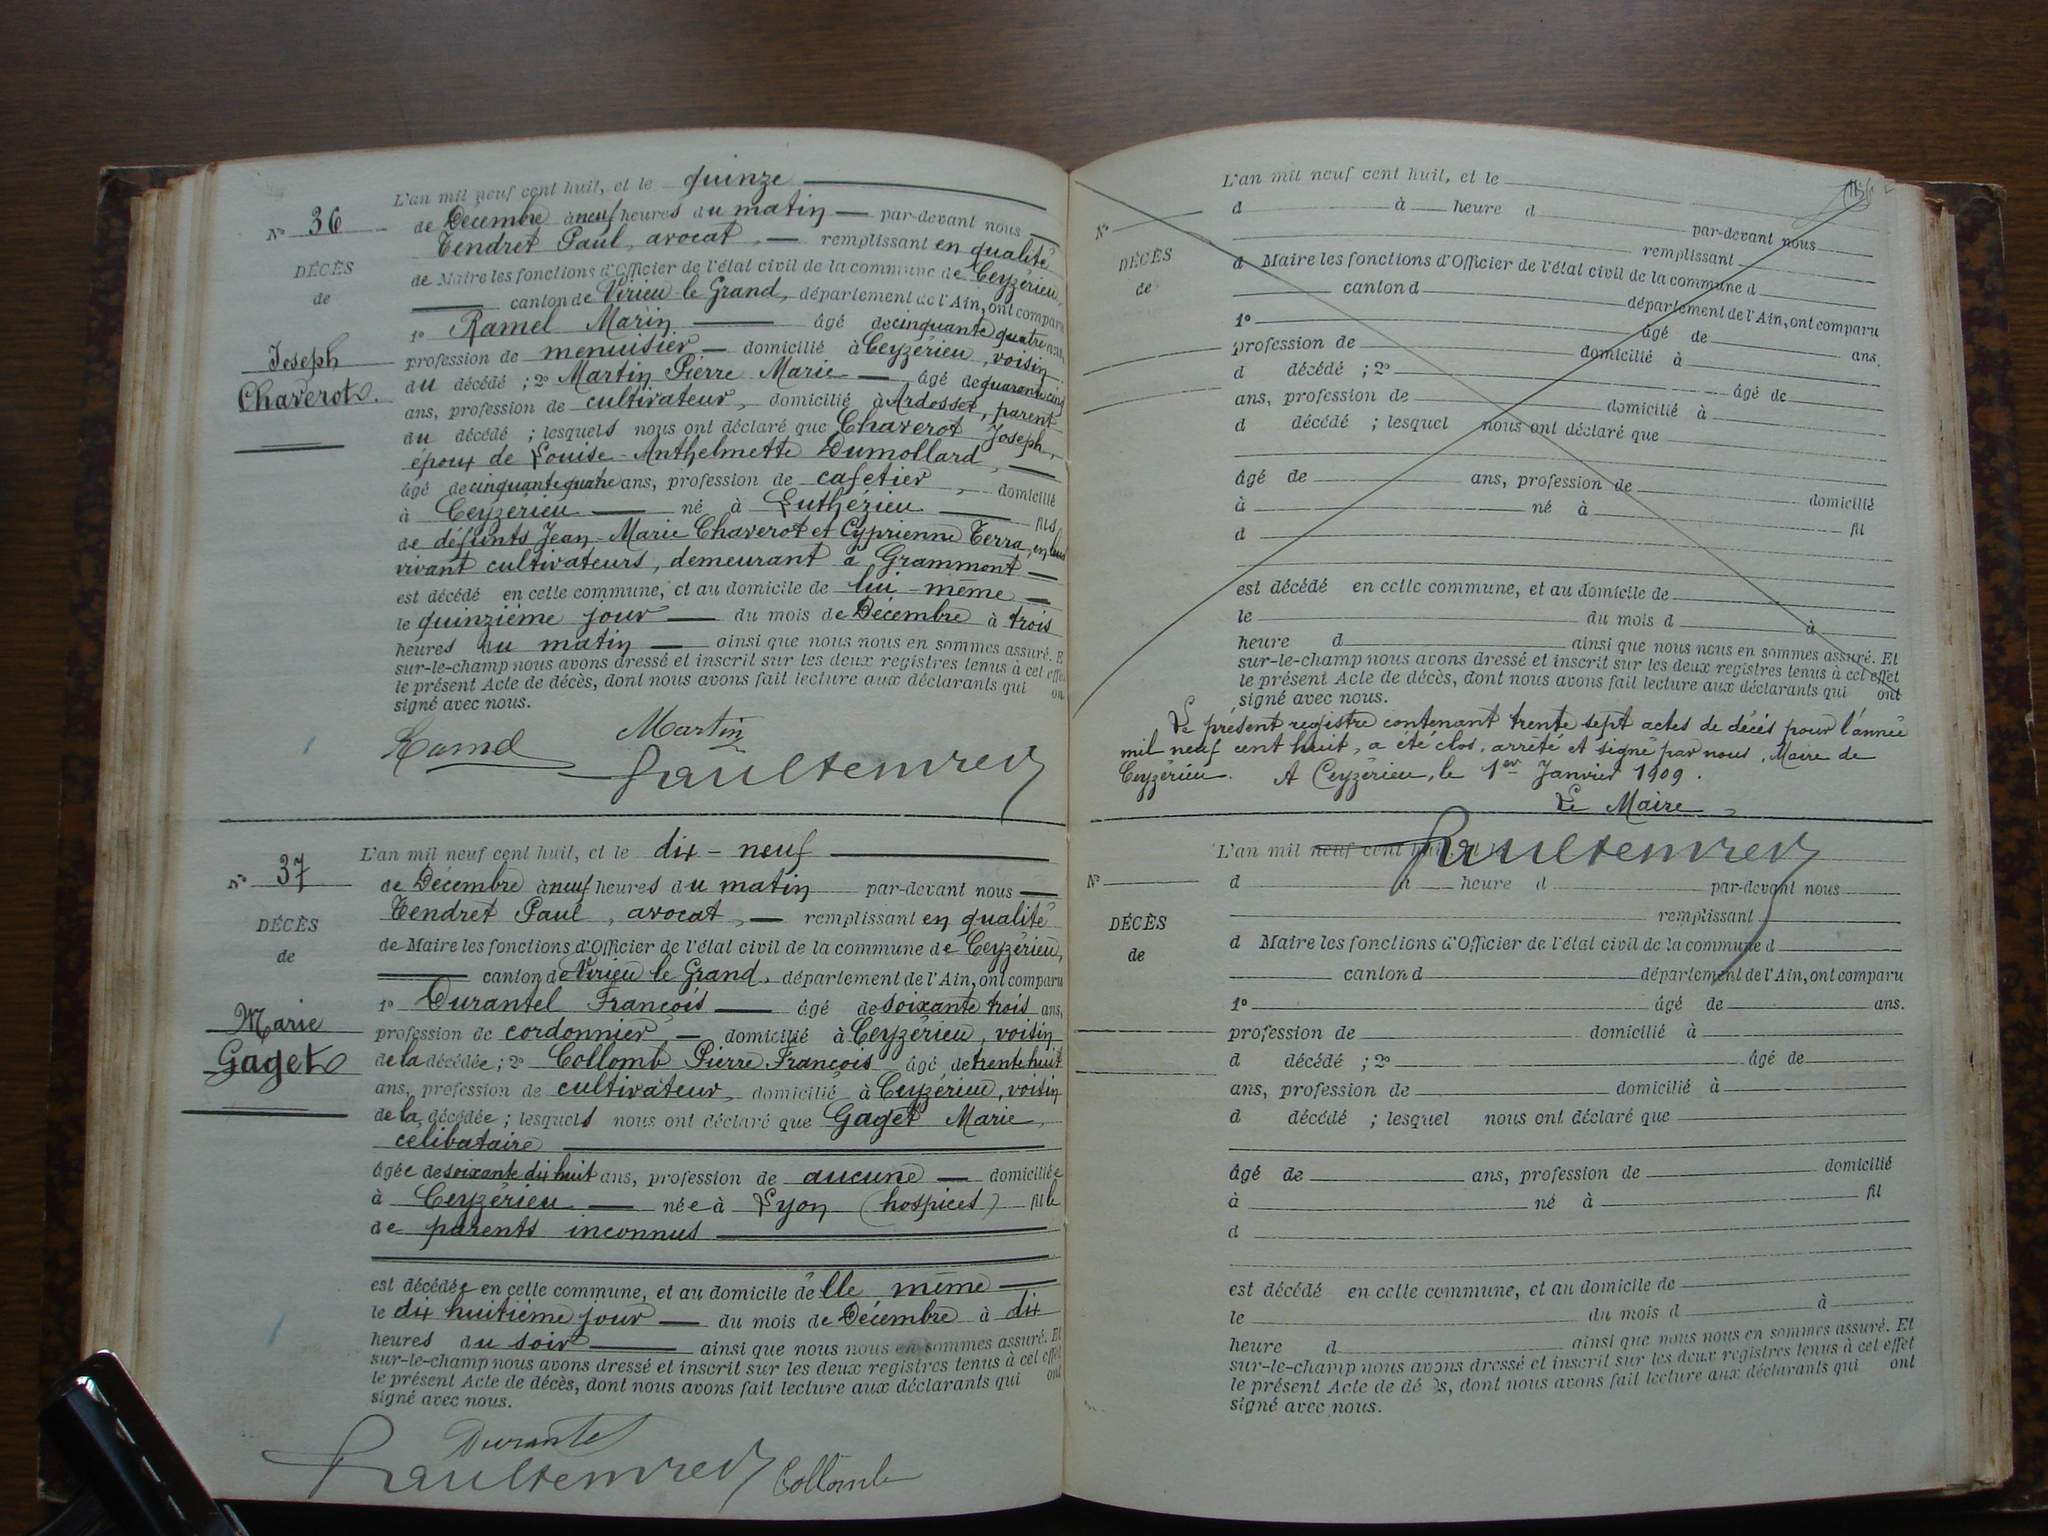 L'an mil neuf cent huit, et le quinze
N° 36
de Décembre à neuf heures du matin par-devant nous
Tendret Paul, avocat, remplissant en qualité
DÉCÈS
de Maire les fonctions d'Officier de l'état civil de la commune de Ceyzérieu,
de
canton de Virieu le Grand, département de l'Ain, ont comparu
1° Ramel Marin âgé de cinquante quatre ans,
Joseph
profession de menuisier domicilié à Ceyzérieu, voisin
Chaverot.
du décédé ; 2° Martin Pierre Marie âgé de quarante cinq
ans, profession de cultivateur, domicilié à Ardosset, parent
du décédé ; lesquels nous ont déclaré que Chaverot Joseph,
époux de Louise-Anthelmette Dumollard,
âgé de cinquante quatre ans, profession de cafetier, domicilié
à Ceyzérieu né à Luthézieu fils
de défunts Jean-Marie Chaverot et Cyprienne Terra, en leur
vivant cultivateurs, demeurant à Grammont
est décédé en cette commune, et au domicile de lui-même
le quinzième jour du mois de Décembre à trois
heures du matin ainsi que nous nous en sommes assuré. Et
sur-le-champ nous avons dressé et inscrit sur les deux registres tenus à cet effet
le présent Acte de décès, dont nous avons fait lecture aux déclarants qui ont
signé avec nous.
Ramel Martin
Paul Tendret
L'an mil neuf cent huit, et le dix-neuf
N° 37
de Décembre à neuf heures du matin par-devant nous
Tendret Paul, avocat, remplissant en qualité
DÉCÈS
de Maire les fonctions d'Officier de l'état civil de la commune de Ceyzérieu,
de
canton de Virieu le Grand, département de l'Ain, ont comparu
1° Durantel François âgé de soixante trois ans,
Marie
profession de cordonnier domicilié à Ceyzérieu, voisin
Gaget
de la décédée ; 2° Collomb Pierre François âgé de trente huit
ans, profession de cultivateur, domicilié à Ceyzérieu, voisin
de la décédée ; lesquels nous ont déclaré que Gaget Marie,
célibataire
âgée de soixante dix huit ans, profession de aucune domiciliée
à Ceyzérieu née à Lyon (hospices) fille
de parents inconnus
est décédée en cette commune, et au domicile d'elle même
le dix huitième jour du mois de Décembre à dix
heures du soir ainsi que nous nous en sommes assuré. Et
sur-le-champ nous avons dressé et inscrit sur les deux registres tenus à cet effet
le présent Acte de décès, dont nous avons fait lecture aux déclarants qui ont
signé avec nous.
Durantel
Paul Tendret Collomb
L'an mil neuf cent huit, et le
N°
d à heure d par-devant nous
remplissant
DÉCÈS
d Maire les fonctions d'Officier de l'état civil de la commune d
de
canton d département de l'Ain, ont comparu
1° âgé de ans.
profession de domicilié à
d décédé ; 2° âgé de
ans, profession de domicilié à
d décédé ; lesquel nous ont déclaré que
âgé de ans, profession de domicilié
à né à fil
d
est décédé en cette commune, et au domicile de
le du mois d à
heure d ainsi que nous nous en sommes assuré. Et
sur-le-champ nous avons dressé et inscrit sur les deux registres tenus à cet effet
le présent Acte de décès, dont nous avons fait lecture aux déclarants qui ont
signé avec nous.
Le présent registre contenant trente sept actes de décès pour l'année
mil neuf cent huit, a été clos, arrêté et signé par nous, Maire de
Ceyzérieu. A Ceyzérieu, le 1er Janvier 1909.
Le Maire
Paul Tendret
L'an mil neuf cent huit, et le
N°
d à heure d par-devant nous
remplissant
DÉCÈS
d Maire les fonctions d'Officier de l'état civil de la commune d
de
canton d département de l'Ain, ont comparu
1° âgé de ans.
profession de domicilié à
d décédé ; 2° âgé de
ans, profession de domicilié à
d décédé ; lesquel nous ont déclaré que
âgé de ans, profession de domicilié
à né à fil
d
est décédé en cette commune, et au domicile de
le du mois d à
heure d ainsi que nous nous en sommes assuré. Et
sur-le-champ nous avons dressé et inscrit sur les deux registres tenus à cet effet
le présent Acte de décès, dont nous avons fait lecture aux déclarants qui ont
signé avec nous.